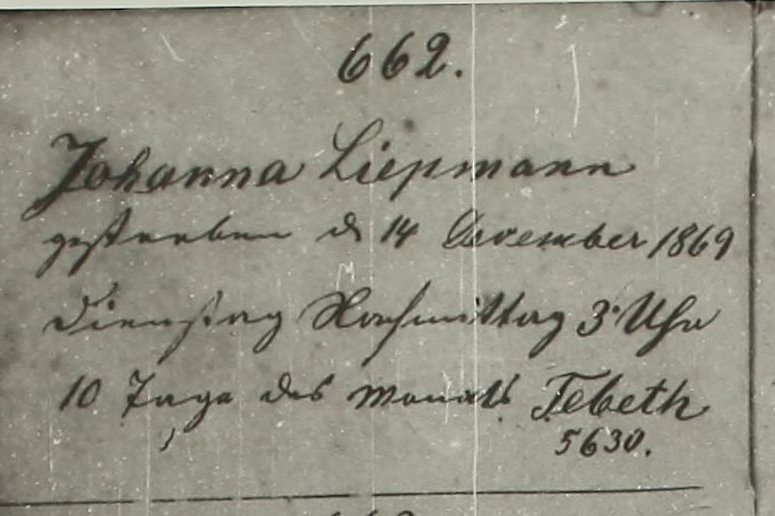 662.
Johanna Liepmann
gestorben d 14 December 1869
Dienstag Nachmittag 3 Uhr
10 Tage des Monats Tebeth
5630.